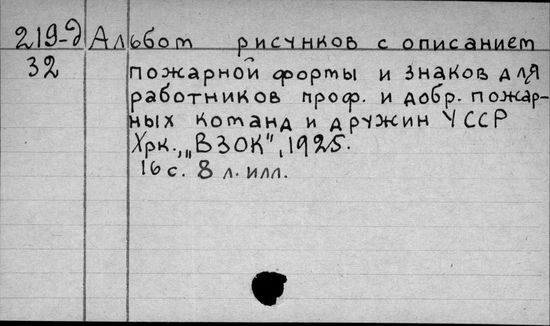 219-д Альбом рисунков с описанием
32 пожарной формы и знаков для
работников проф. и добр. пожар-
ных команд и дружин УССР
Хрк., „ВЗОК", 1925.
16 с. 8 л. илл.